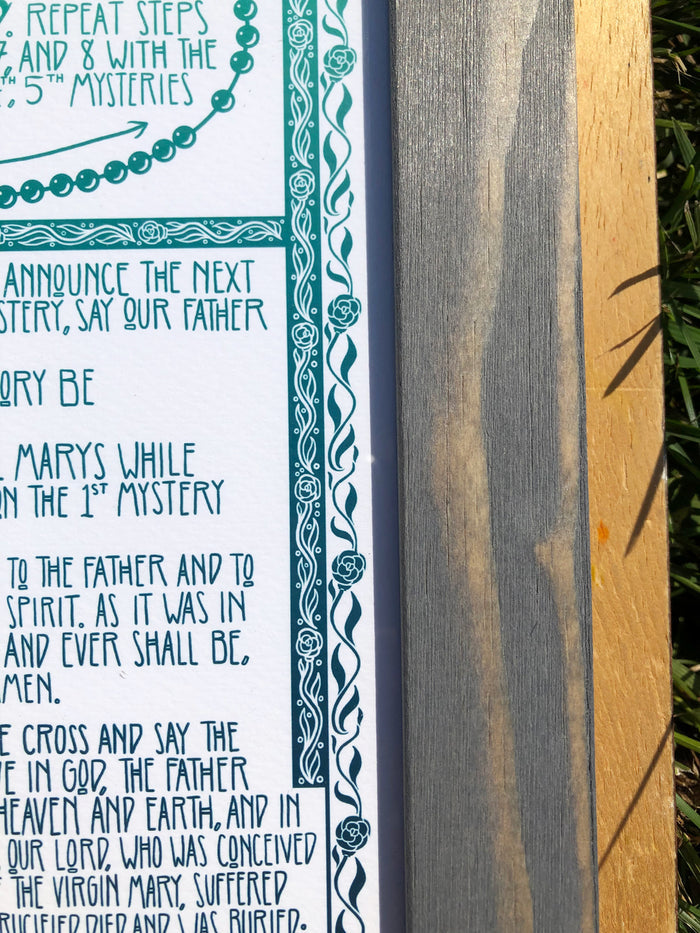 . REPEAT STEPS
7, AND 8 WITH THE
TH, 5TH MYSTERIES
ANNOUNCE THE NEXT
STERY, SAY OUR FATHER
ORY BE
MARYS WHILE
ON THE 1ST MYSTERY
TO THE FATHER AND TO
SPIRIT. AS IT WAS IN
AND EVER SHALL BE,
MEN.
E CROSS AND SAY THE
VE IN GOD, THE FATHER
HEAVEN AND EARTH, AND IN
OUR LORD, WHO WAS CONCEIVED
THE VIRGIN MARY, SUFFERED
RUCIFIED DIED AND WAS BURIED.